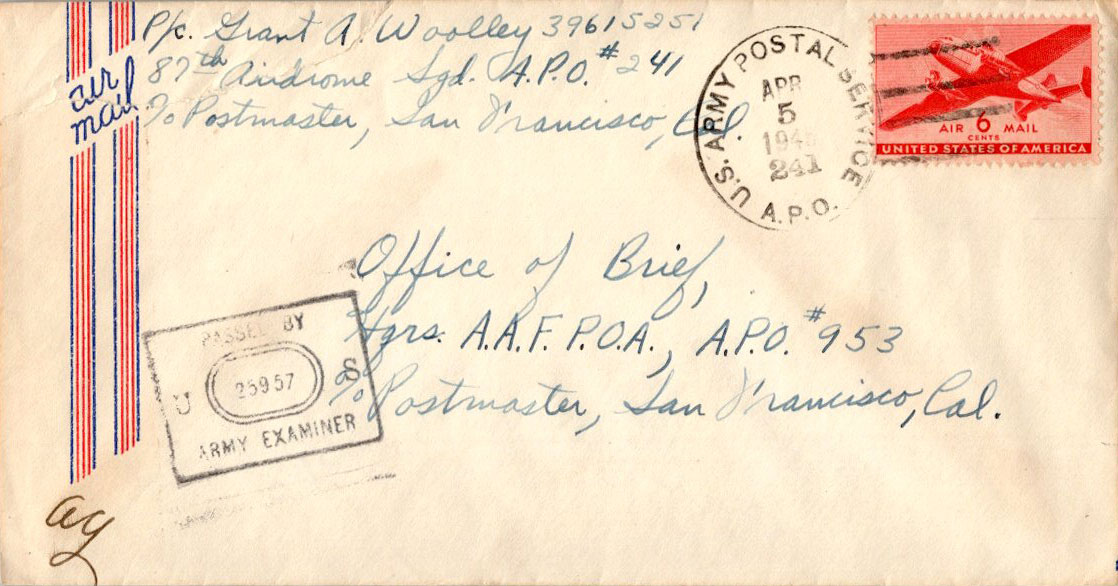 Pfc. Grant A. Woolley 39615251
87th Airdrome Sqd. A.P.O. #241
c/o Postmaster, San Francisco, Cal.
air
mail
U.S. ARMY POSTAL SERVICE
APR
5
241
A.P.O.
AIR 6 MAIL
CENTS
UNITED STATES OF AMERICA
Office of Brief,
Hqrs. A.A.F. P.O.A., A.P.O. #953
c/o Postmaster, San Francisco, Cal.
PASSED BY
U 25957 S
ARMY EXAMINER